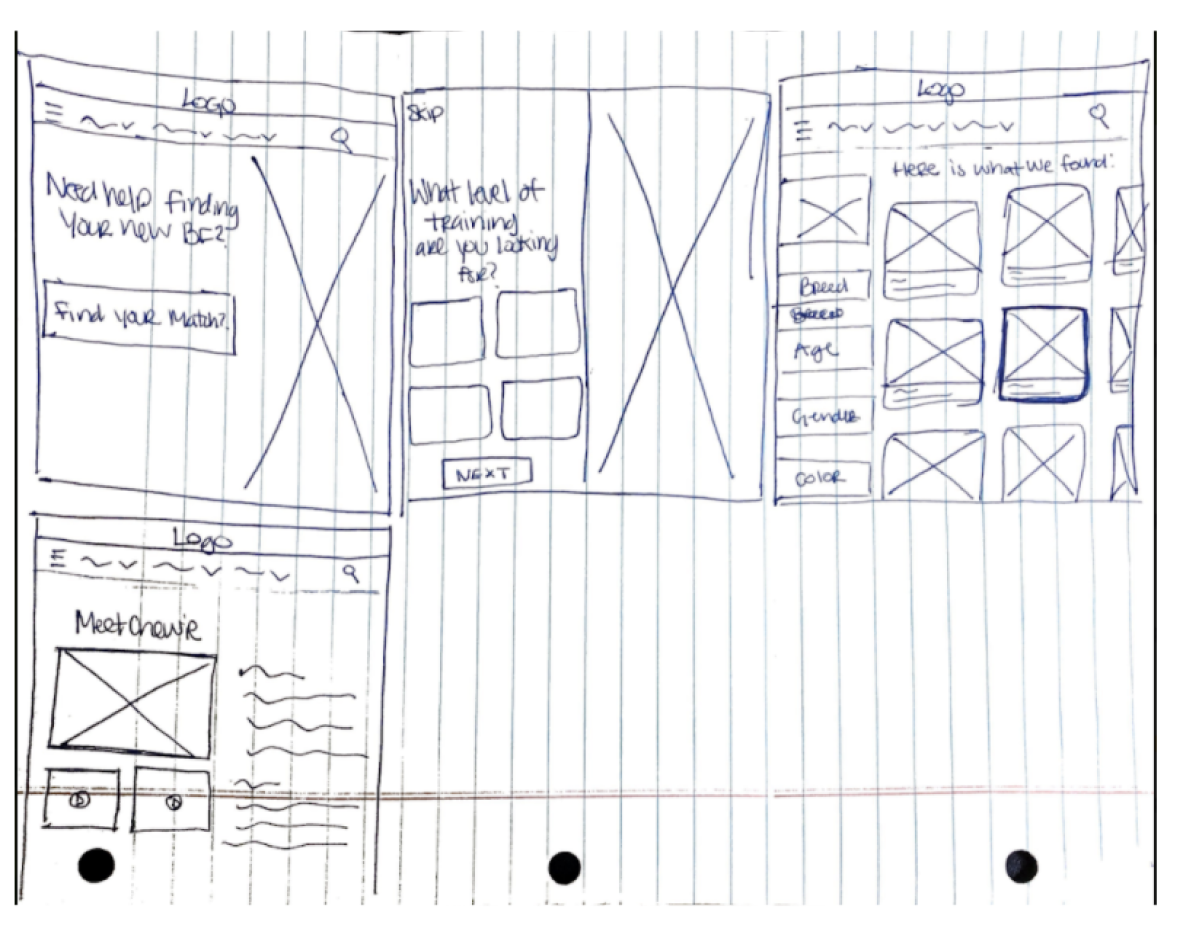 Logo
Need help finding
your new BF?
Find your Match?
Skip
What level of
training
are you looking
for?
NEXT
Logo
Here is what we found:
Breed
Breed
Age
Gender
Color
Logo
Meet Chewie